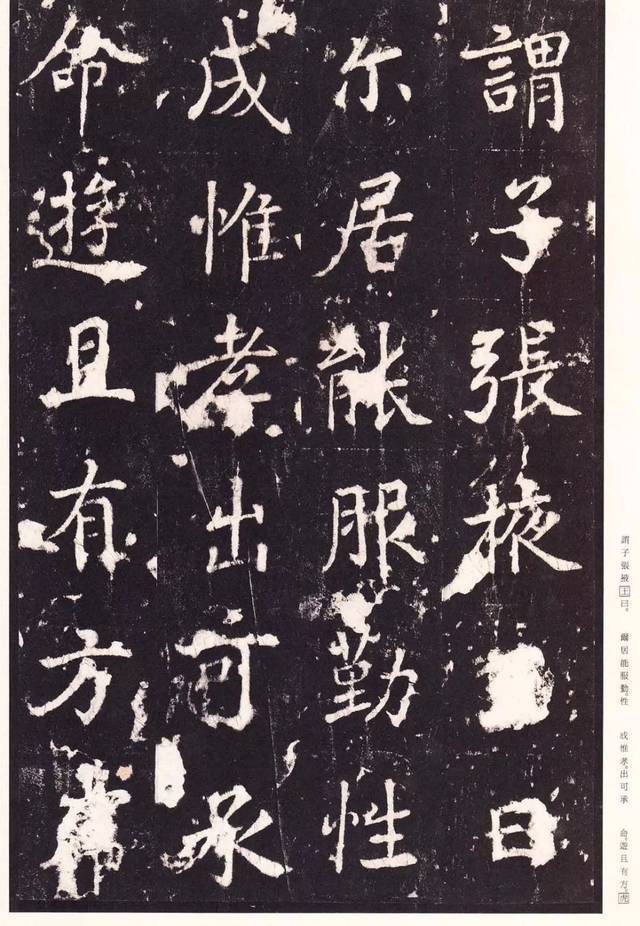 謂子張掖王曰
尔居能服勤性
成惟孝出可承
命遊且有方
謂子張掖王曰。　爾居能服勤。性　成惟孝。出可承　命。遊且有方。虎